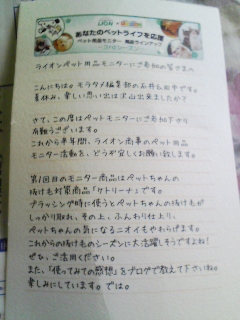 LION
あなたのペットライフを応援
ペット用品モニター 商品ラインアップ
ライオンペット用品モニターにご参加の皆さまへ
こんにちは。モラタメ編集部の石井弘田中です。
夏休み、楽しい思い出は沢山出来ましたか?
さて、この度はペットモニターにご参加下さり
有難うございます。
これから半年間、ライオン商事のペット用品
モニター活動を、どうぞ宜しくお願い致します。
第1回目のモニター商品はペットちゃんの
抜け毛対策商品「ケトリーナ」です。
ブラッシング時に使うとペットちゃんの抜け毛が
しっかり取れ、その上、ふんわり仕上り、
ペットちゃんの気になるニオイもやわらげます。
これからの抜け毛のシーズンに大活躍しそうですよね!
ぜひ、ご活用ください。
また、「使ってみての感想」をブログで教えて下さいね。
楽しみにしています。では。